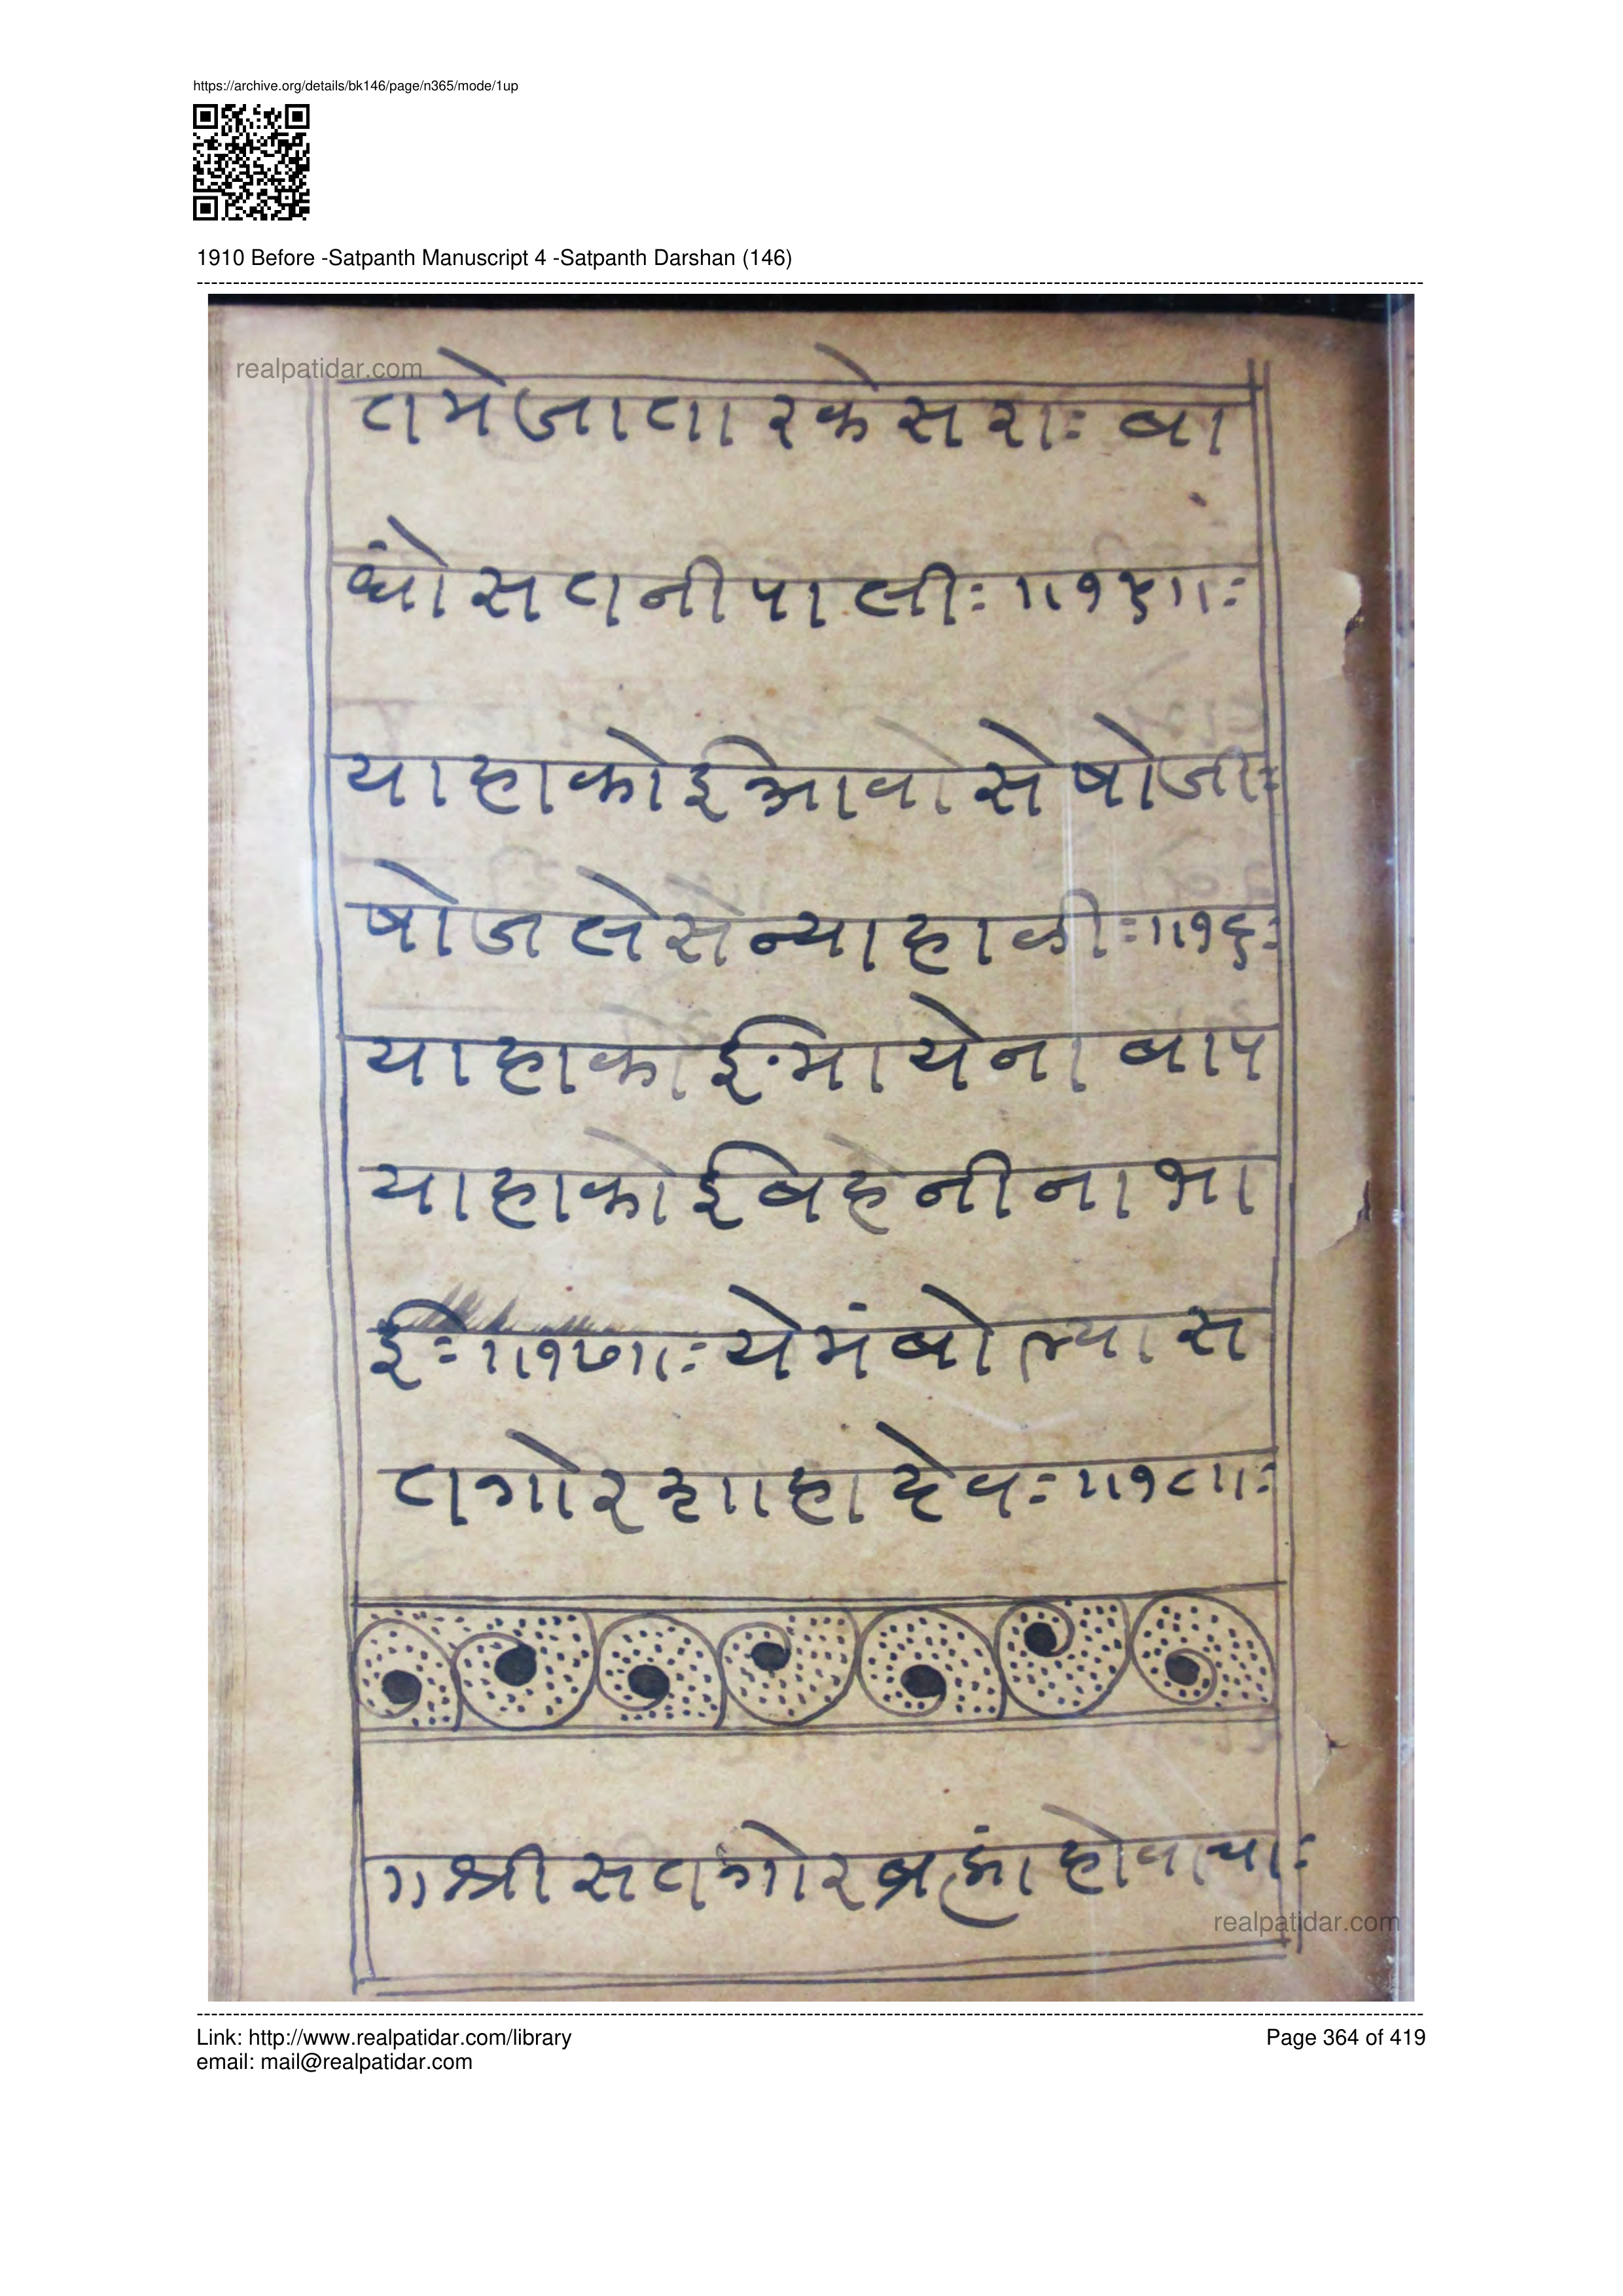 https://archive.org/details/bk146/page/n365/mode/1up
1910 Before -Satpanth Manuscript 4 -Satpanth Darshan (146)
realpatidar.com
तमेजातारकेसराः बा
धोंसतनीपालीः ॥१५॥ः
याहाकोईआवोसेषोजीः
षोजलेसन्याहाळीः॥१६ः
याहाकोईमायेनाबाप
याहाकोईबेहेनीनाभा
ईः॥१७॥ः येमंबोल्यास
तगोरशाहादेवः॥१८॥ः
गश्रीसतगोरब्रह्मांहोवाचाः
realpatidar.com
Link: http://www.realpatidar.com/library
Page 364 of 419
email: mail@realpatidar.com